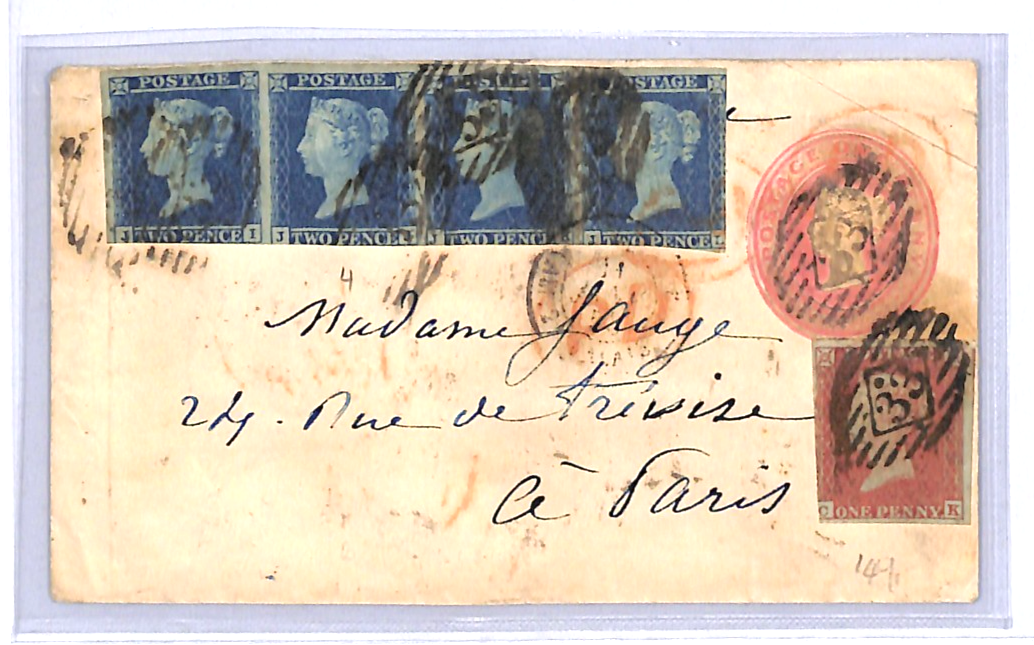 POSTAGE POSTAGE POSTAGE POSTAGE
J TWO PENCE I J TWO PENCE J TWO PENCE J TWO PENCE L
POSTAGE ON NY
4
Madame Gauge
24. Rue de Trévise
à Paris
C ONE PENNY K